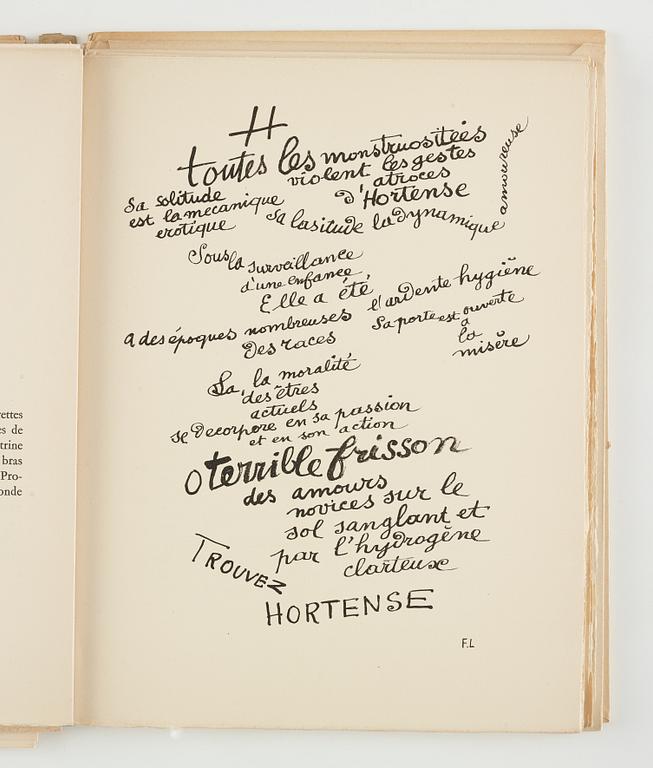 ettes
s de
trine
bras
Pro-
onde
H
toutes les monstruositées
violent les gestes
d'atroces
d'Hortense
Sa solitude
est la mecanique
erotique
Sa lasitude la dynamique
amoureuse
Sous la surveillance
d'une enfance
Elle a été,
a des époques nombreuses
des races
l'ardente hygiène
Sa porte est ouverte
a
la
misère
La, la moralité
des êtres
actuels
se decorpore en sa passion
et en son action
O terrible frisson
des amours
novices sur le
sol sanglant et
par l'hydrogène
clarteux
TROUVEZ
HORTENSE
F.L